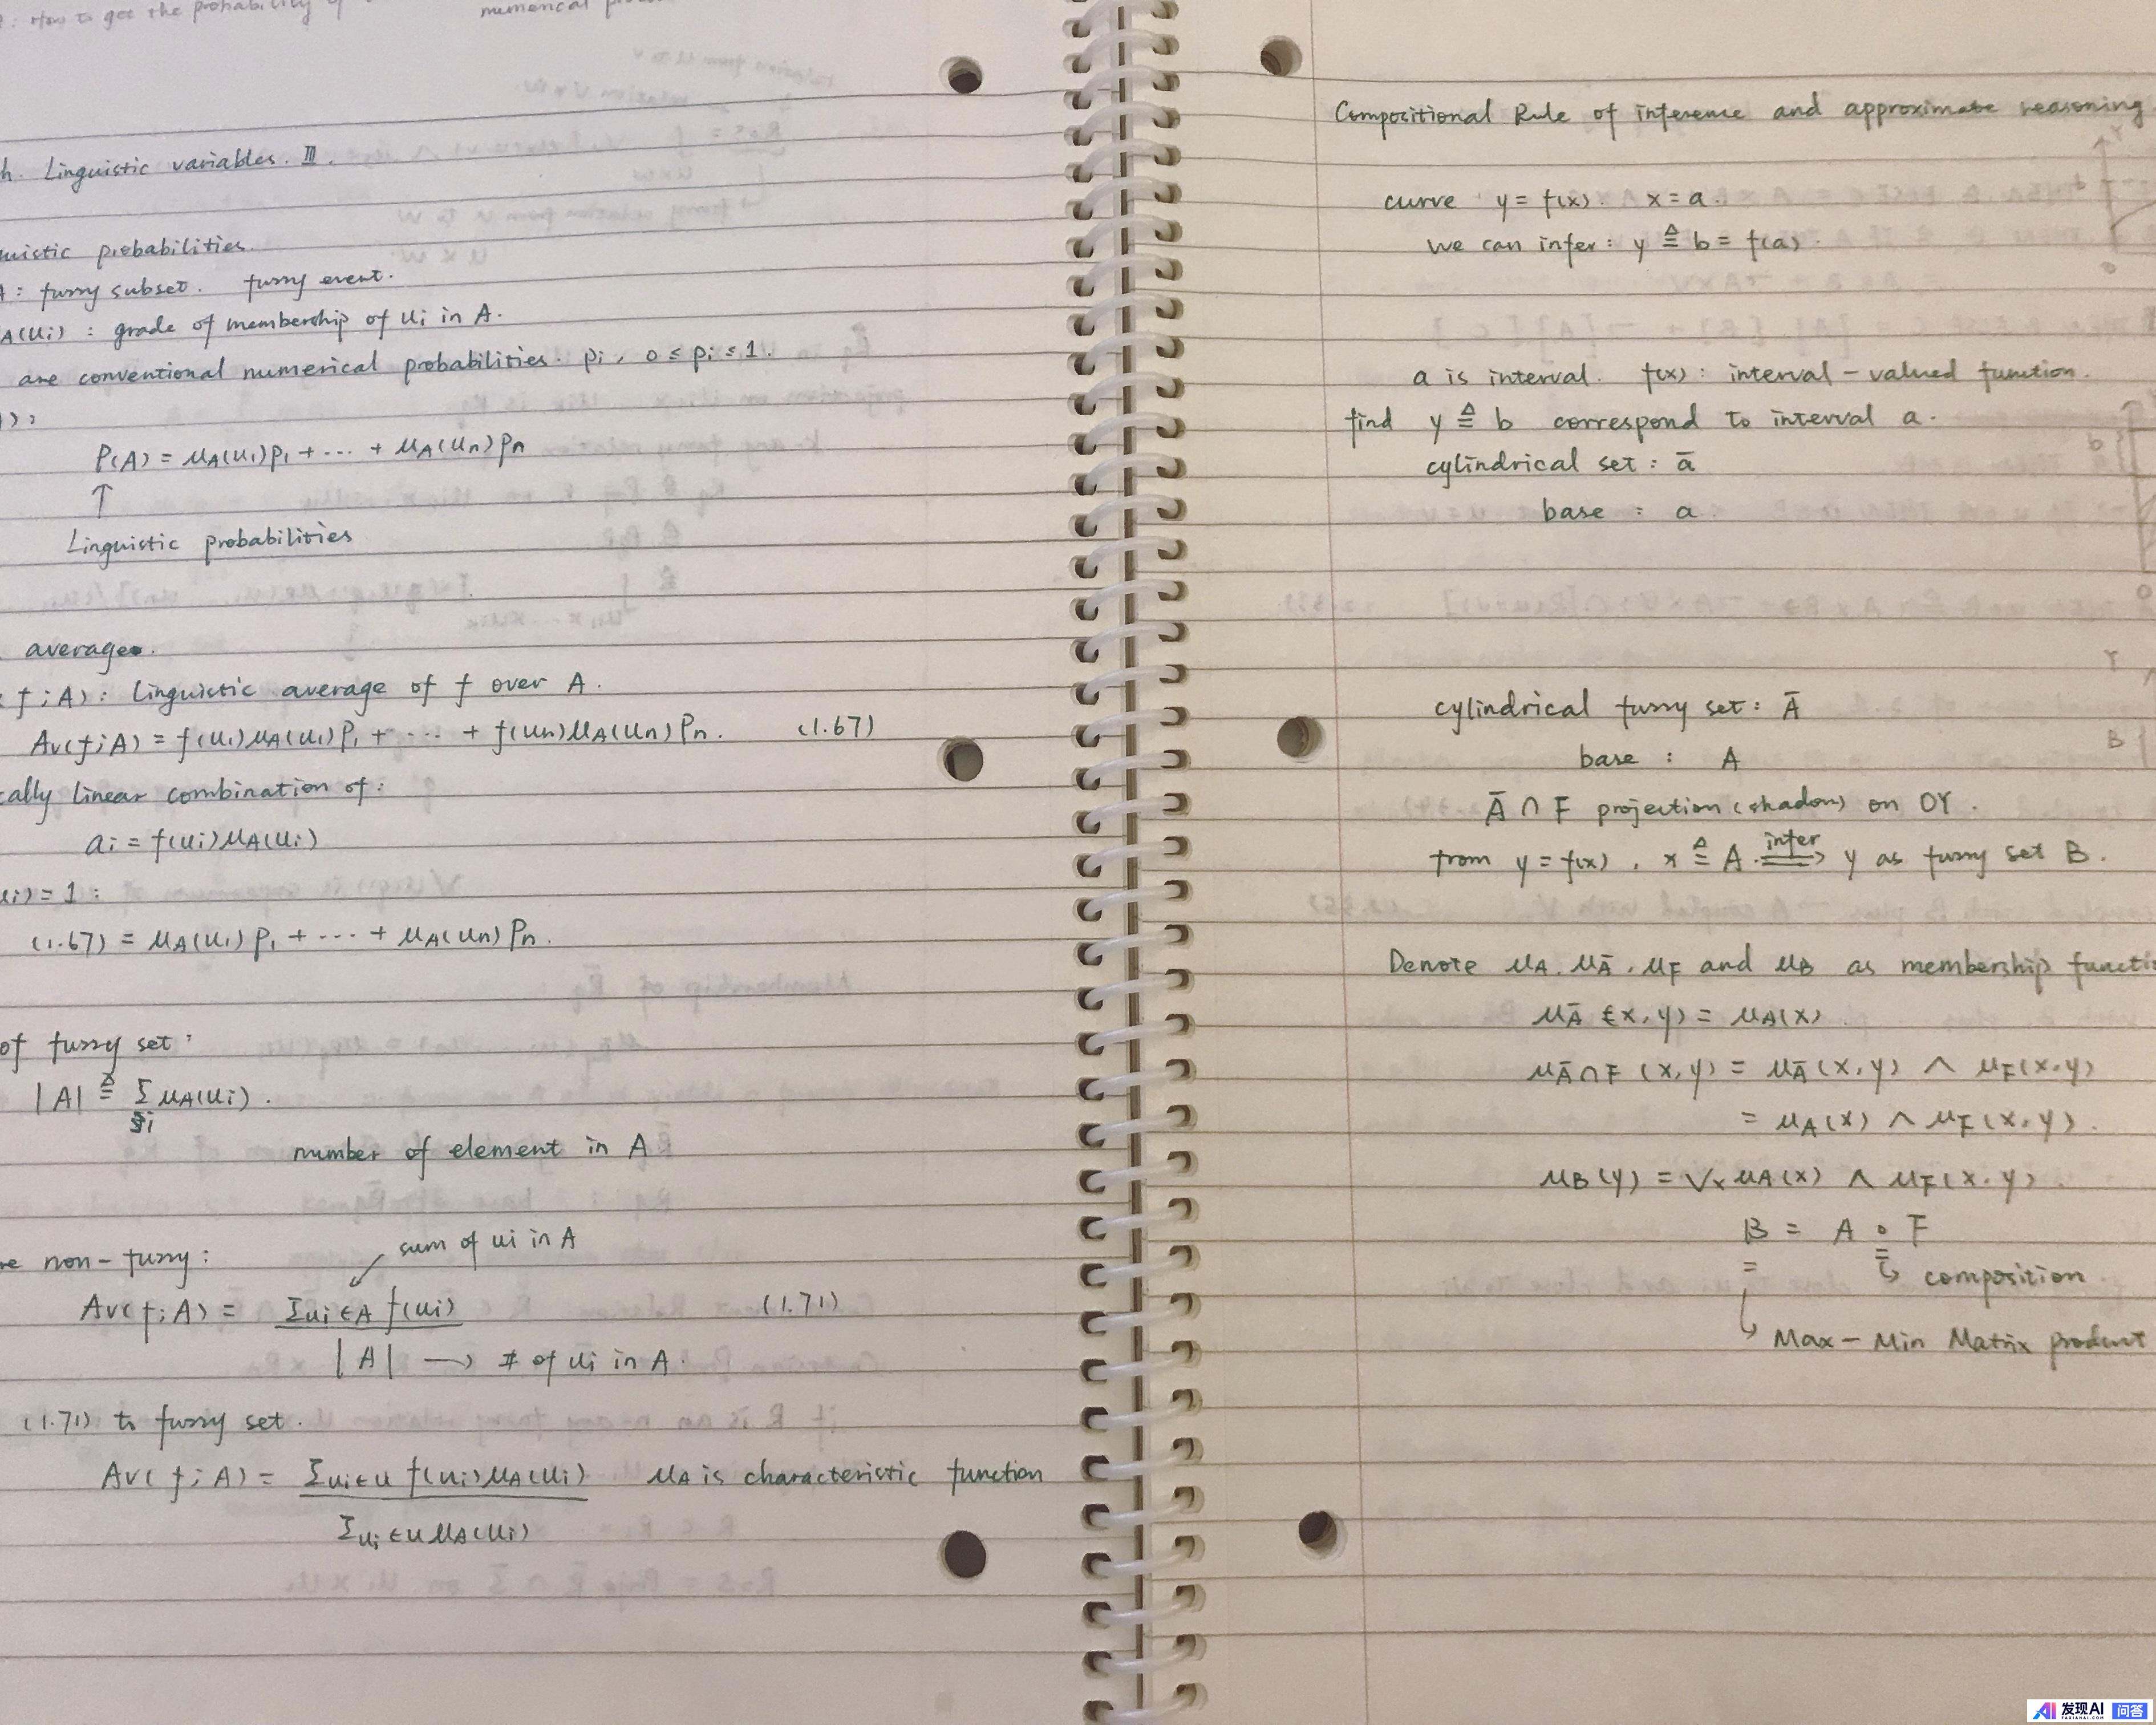 : How to get the probability of
numerical
h. Linguistic variables. III.
uistic probabilities.
A: fuzzy subset. fuzzy event.
A(ui) : grade of membership of ui in A.
are conventional numerical probabilities. pi, 0 ≤ pi ≤ 1.
):
P(A) = μA(u1)p1 + ... + μA(un)pn
↑
Linguistic probabilities
average.
f; A): Linguistic average of f over A.
Av(f;A) = f(u1)μA(u1)p1 + ... + f(un)μA(un)Pn. (1.67)
cally linear combination of:
ai = f(ui)μA(ui)
ui) = 1 :
(1.67) = μA(u1)p1 + ... + μA(un)Pn.
of fuzzy set:
|A| ≜ Σi μA(ui).
number of element in A.
sum of ui in A
re non-fuzzy:
Av(f;A) = Σui∈A f(ui) (1.71)
|A| → # of ui in A.
(1.71) to fuzzy set.
Av(f;A) = Σui∈u f(ui)μA(ui) μA is characteristic function
Σui∈u μA(ui)
Compositional Rule of inference and approximate reasoning
curve y = f(x). x = a.
we can infer: y ≜ b = f(a).
a is interval. f(x): interval-valued function.
find y ≜ b correspond to interval a.
cylindrical set: ā
base : a.
cylindrical fuzzy set: Ā
base : A
Ā ∩ F projection (shadow) on OY.
from y = f(x), x ≜ A infer ⟹ y as fuzzy set B.
Denote μA. μĀ, μF and μB as membership functi
μĀ (x, y) = μA(x)
μĀ∩F (x,y) = μĀ(x,y) ∧ μF(x,y)
= μA(x) ∧ μF(x,y).
μB(y) = ∨x μA(x) ∧ μF(x,y).
B = A ∘ F
↳ composition.
↳ Max-Min Matrix product
发现AI 问答
FAXIANAI.COM